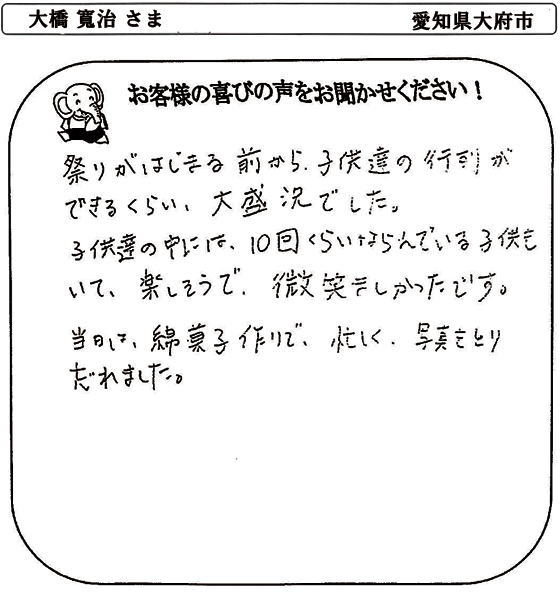 大橋 寛治 さま
愛知県大府市
お客様の喜びの声をお聞かせください！
祭りがはじまる前から、子供達の行列が
できるくらい、大盛況でした。
子供達の中には、10回くらいならんでいる子供も
いて、楽しそうで、微笑ましかったです。
当日は、綿菓子作りで、忙しく、写真をとり
だれました。